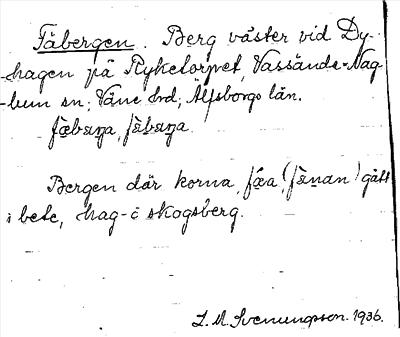 Fäbergen. Berg väster vid Dy-
hagen på Ryketorpet, Vassände-Nag-
lum sn; Väne hd; Älfsborgs län.
fæ̀bærja, fæ̀bærja.
Bergen där korna, fǽa (fæ̀nan) gått
i bete, hag- i skogsberg.
L. M. Svenungsson. 1936.